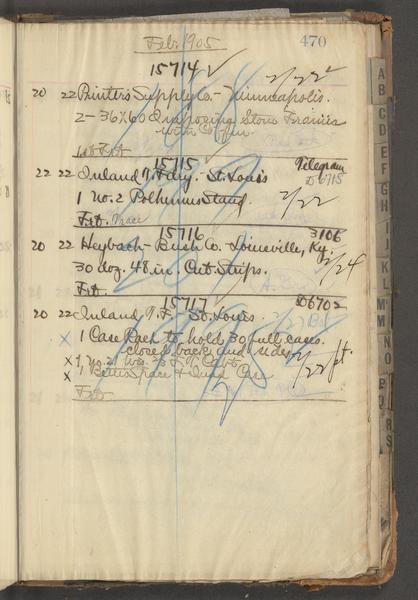 Feb. 1905
470
15714 ✓
20 22 Printers Supply Co. - Minneapolis. 2/22
2 - 36 x 60 Imposing Stone Frames
with Coffin.
Frt
15715
Telegram
22 22 Inland T. Fdry. St. Louis D6715
1 No. 2 Polhemus Stand. 2/22
Frt.
15716 3106
20 22 Heybach-Bush Co. Louisville, Ky. 2/24
30 doz. 48 in. Cut Strips.
Frt.
15717 D6702
20 22 Inland T. F. - St. Louis. 2/27 Bal
x 1 Case Rack to hold 30 full cases.
closed back and sides.
x 1, No. 21 2/22 pt.
x 1, Case
A
B
C
D
E
F
G
H
I
J
K
L
M
M
N
O
P
Q
R
S